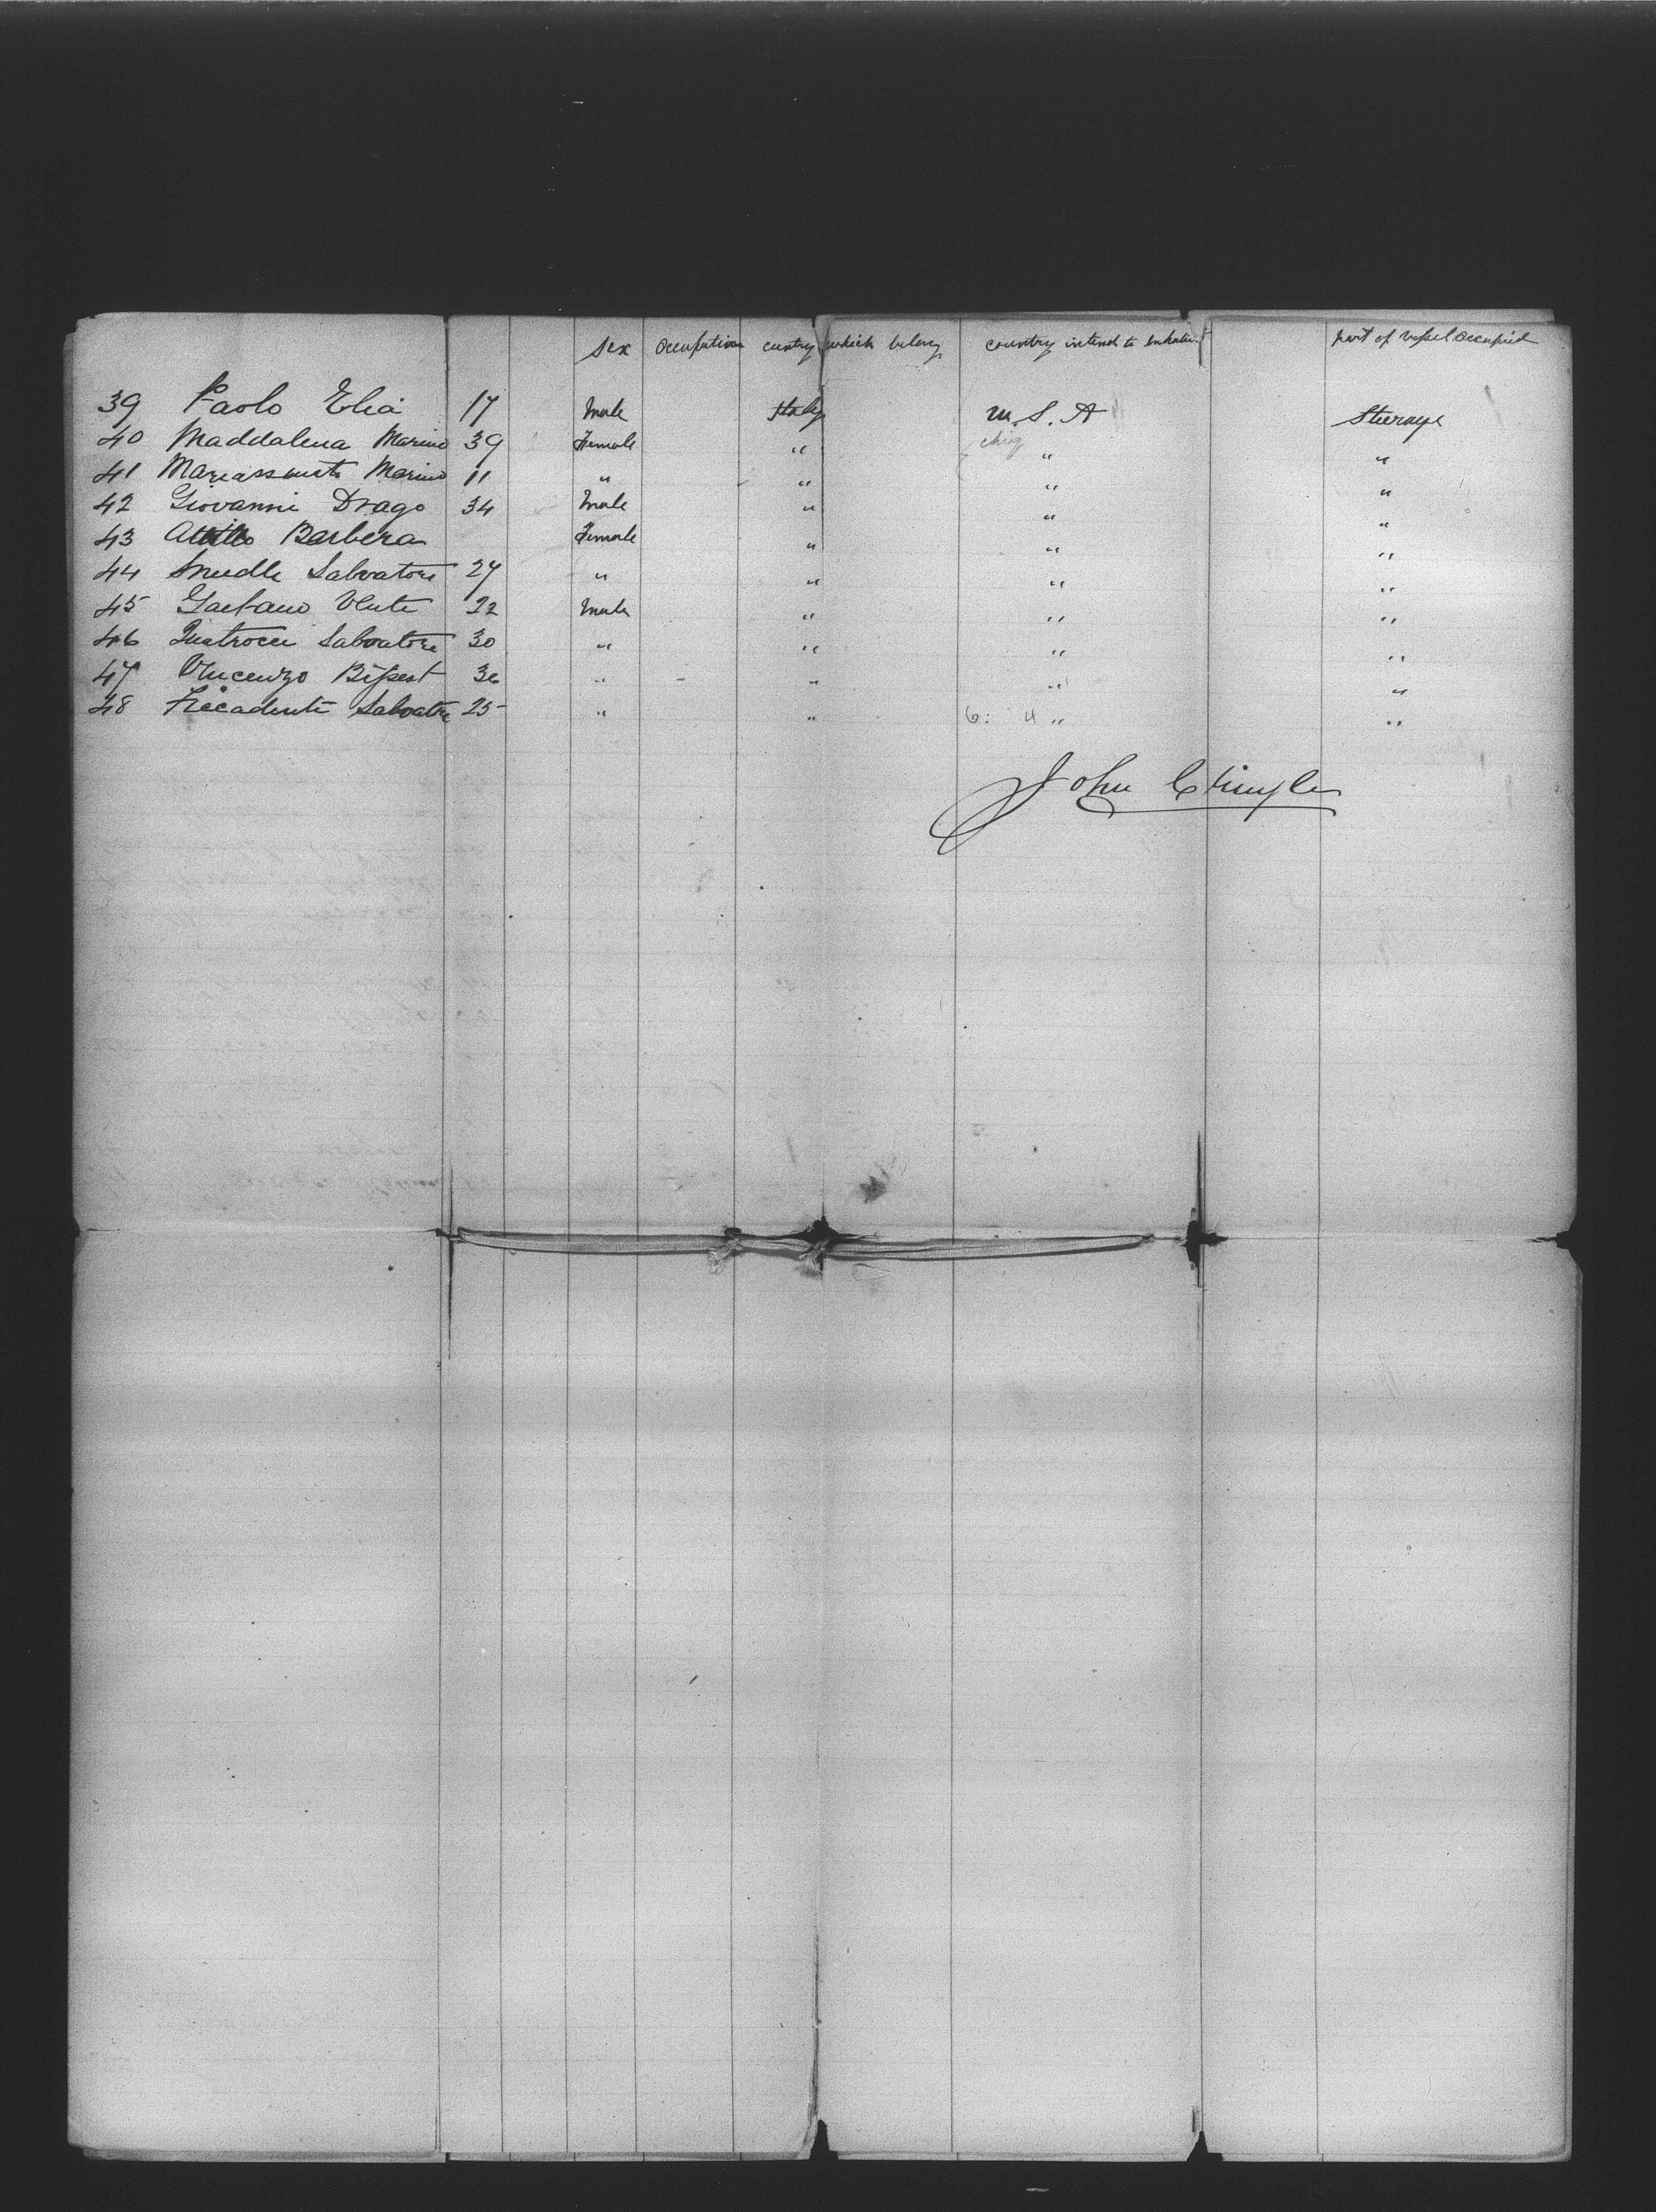 Sex Occupation cuntry which belong country intend to inhabit part of vessel occupied
39 Paolo Elia 17 Male Italy U.S.A Steerage
40 Maddalena Marino 39 Female " " "
41 Mariassunta Marino 11 " " " "
42 Giovanni Drago 34 Male " " "
43 Barbera Female " " "
44 Salvatore 27 " " " "
45 Gaetano 22 Male " " "
46 Salvatore 30 " " " "
47 Vincenzo 36 " " " "
48 Salvatre 25 " " 6: 4 " "
John